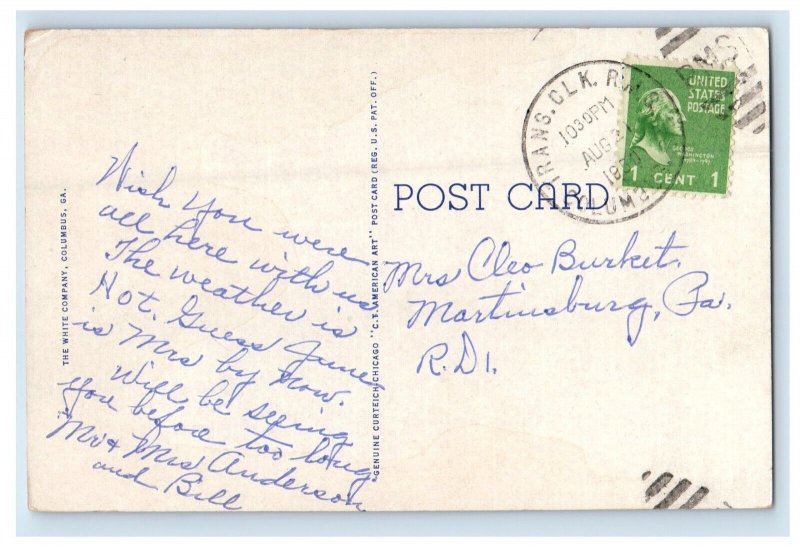 Wish you were
all here with us
The weather is
Hot. Guess June
is Mrs by now.
Will be seeing
you before too long
Mr & Mrs Anderson
and Bill
THE WHITE COMPANY, COLUMBUS, GA.
"GENUINE CURTEICH-CHICAGO "C.T. AMERICAN ART" POST CARD (REG. U.S. PAT. OFF.)
POST CARD
Mrs Cleo Burket.
Martinsburg, Pa.
R.D1.
TRANS. CLK.
1030PM
AUG
COLUMB
RMS
UNITED
STATES
POSTAGE
GEORGE
WASHINGTON
1 CENT 1